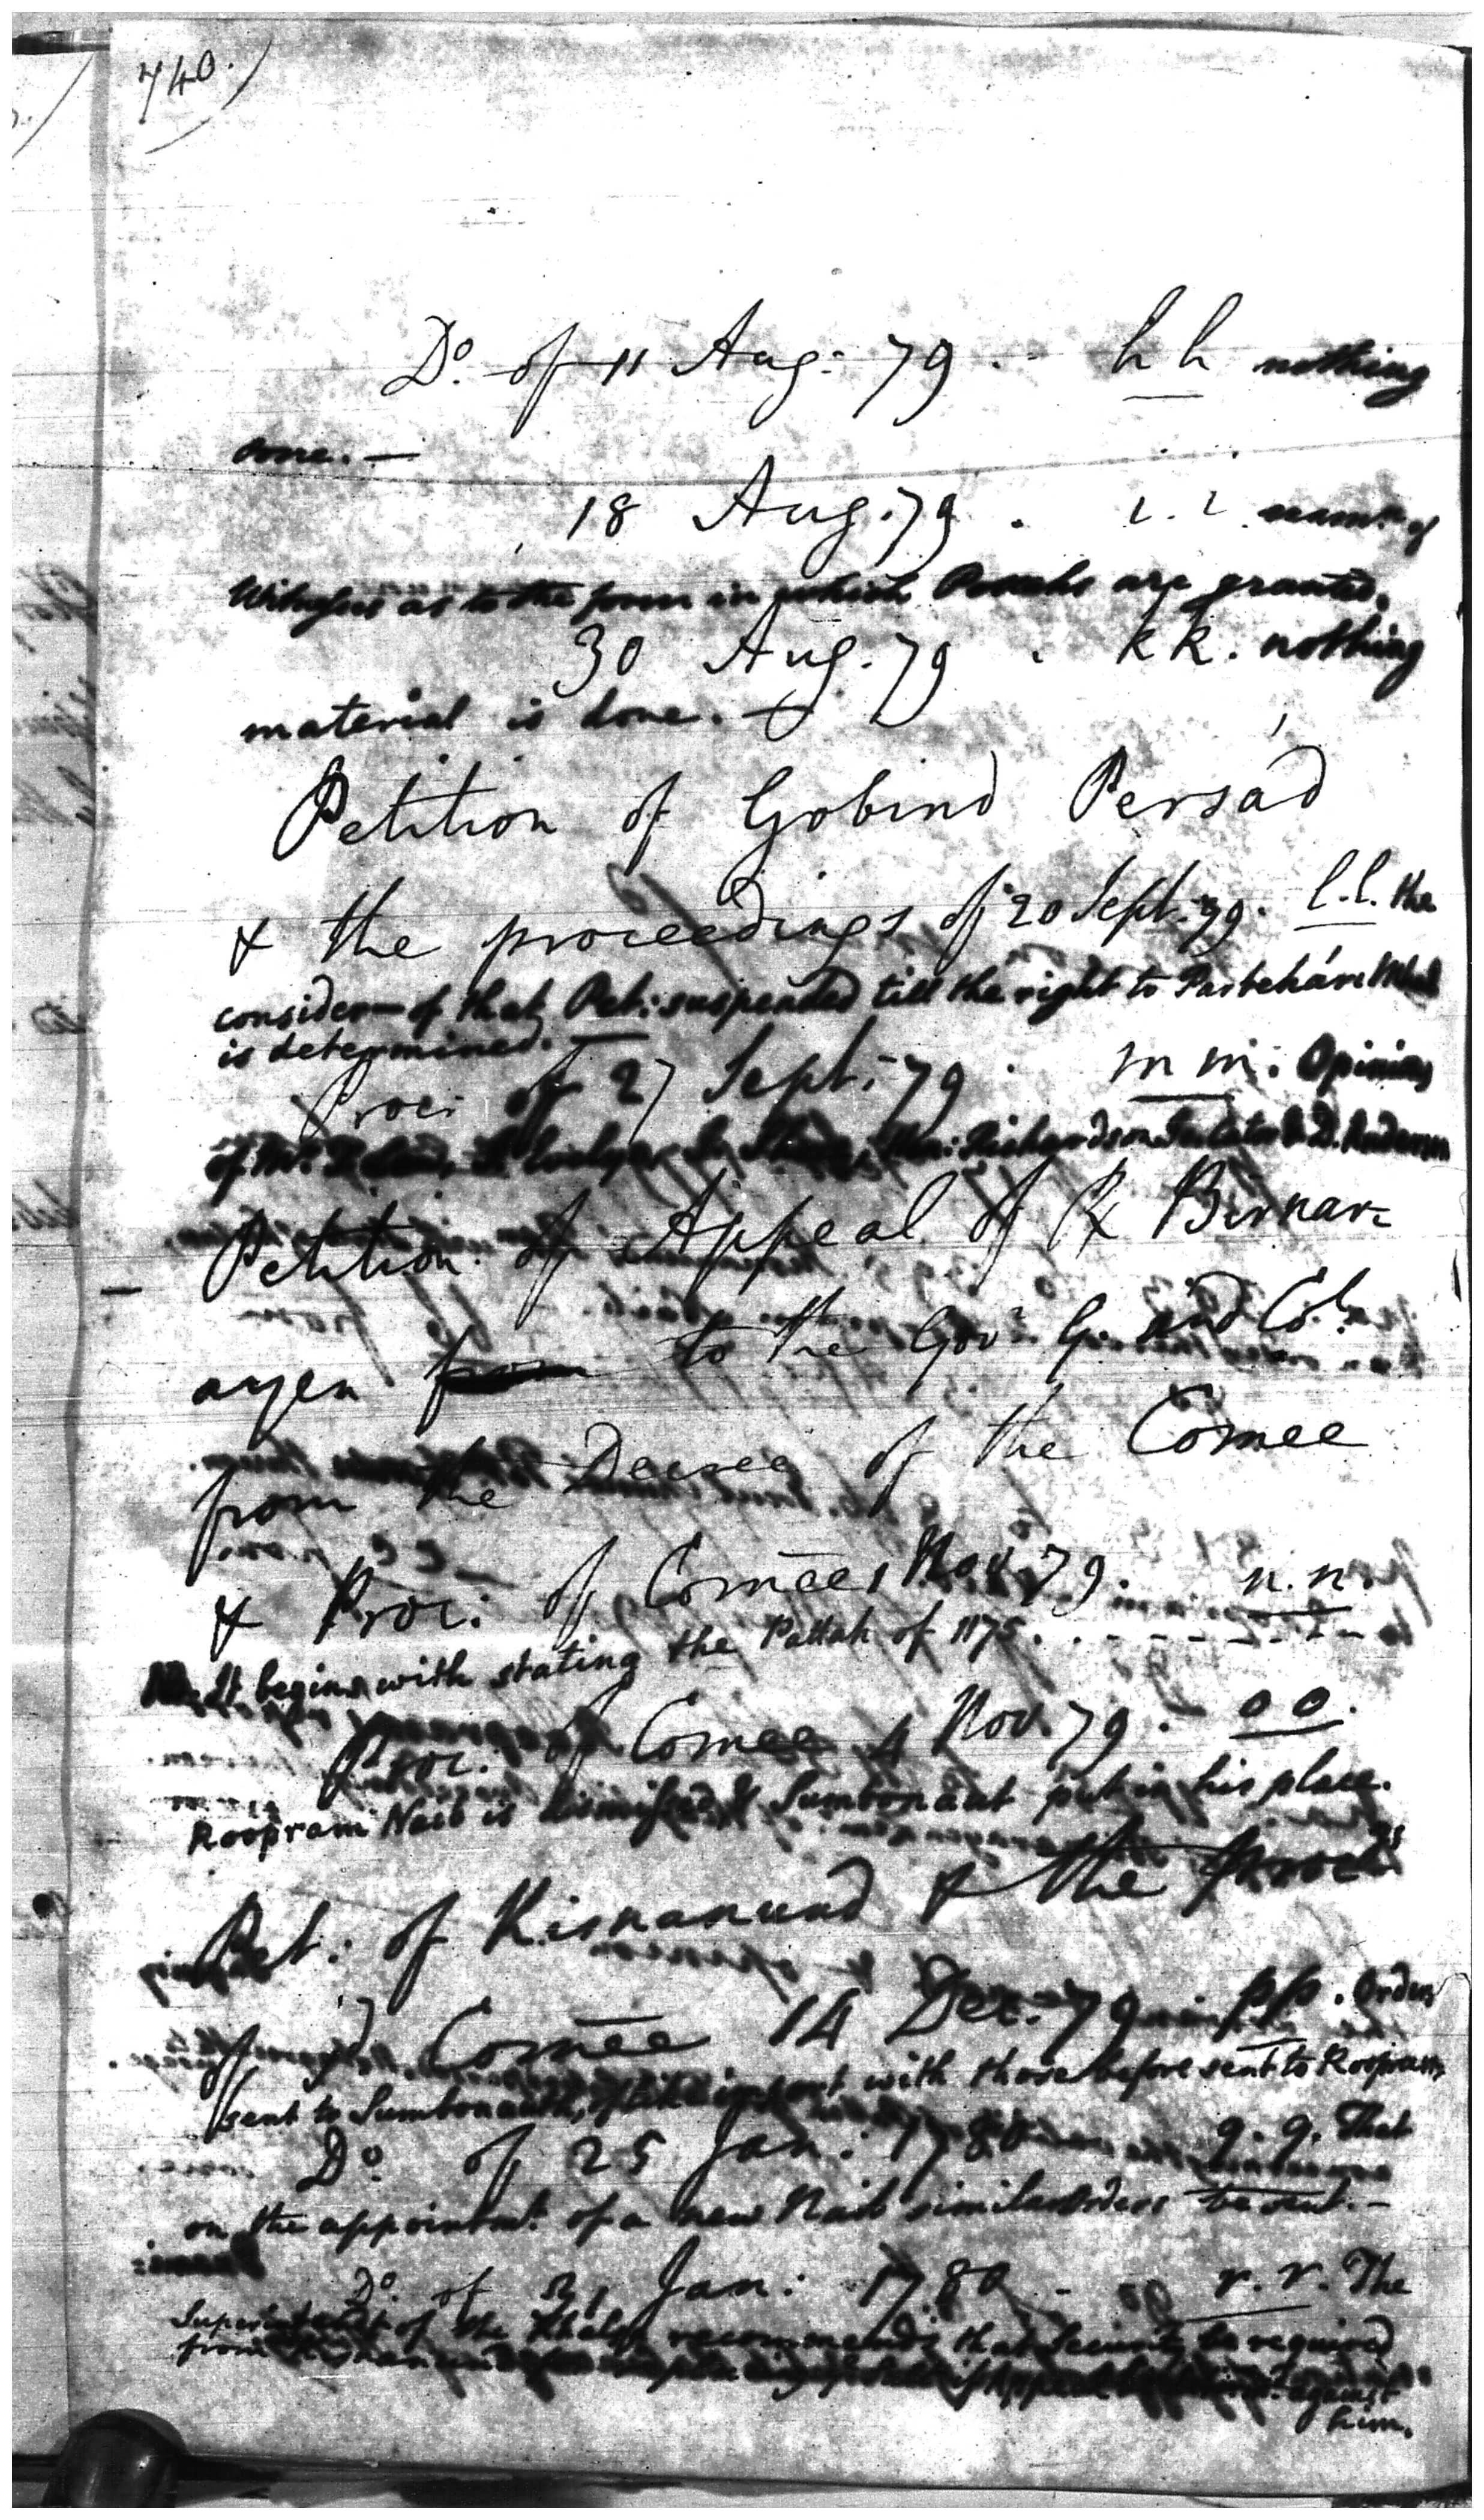 740.)
Do. of 11 Aug: 79 . . h h nothing
done. —
18 Aug. 79 . i. i. examn. of
Witnesses as to the form in which are granted.
30 Aug. 79 . k k. nothing
material is done. —
Petition of Gobind Persád
& the proceedings of 20 Sept. 79. l. l. the
consider— of that Pet: suspended till the right to
is determined. —
Proc: of 27 Sept: 79 . m m. Opinions
of Mr. Richardson D. Anderson
Petition of Appeal of R Birnar=
ayen to the Govr. G. and Col.
from the Decree of the Comee
& Proc: of Comee 1 Nov. 79. n. n.
It begins with stating the Pattah of 1175.
Proc. of Comee 4 Nov. 79. - o o.
Roopram Naib is dismissed & Sumbonaut put in his place.
Pet: of Kisnanund & the procs
of Comee 14 Dec. 79 p p. Orders
sent to Sumbonauth, of like import with those before sent to Roopram,
Do. of 25 Jan: 1780 q. q. That
on the appointmt. of a new Naib similar orders be sent. —
Do. of 31 Jan: 1780 - r. r. The
Superintendt of the Khalsa recommends that Security be required
from Appeal against
him.